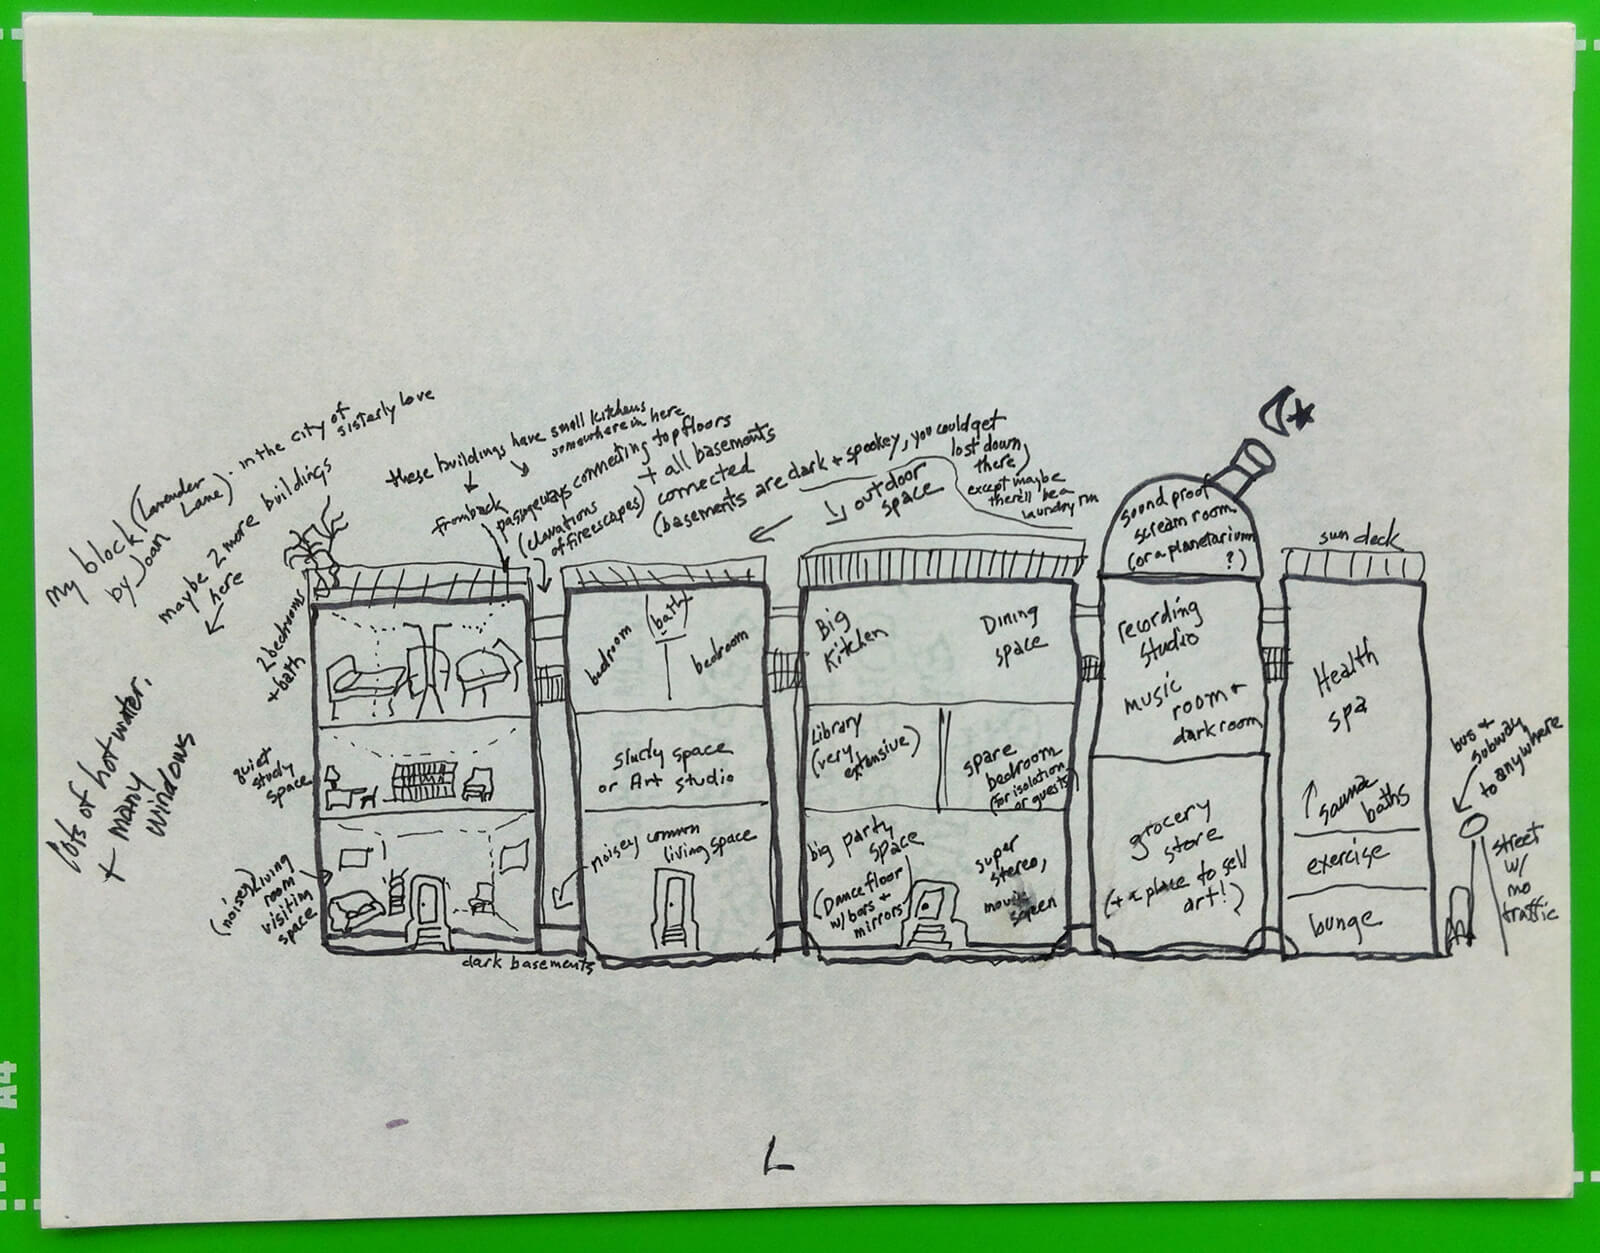 My block (Lavender
Lane) - in the city of
sisterly love
by Joan
maybe 2 more buildings
here
lots of hot water,
+ many
windows
these buildings have small kitchens
somewhere in here
from back
passageways connecting top floors
+ all basements
connected
(elavations
of fireescapes)
(basements are dark + spookey, you could get
lost down
there,
except maybe
there'll be a
laundry rm
outdoor
space
2 bedrooms
+ bath
quiet
study
space
(noisey) living
room
visiting
space
dark basements
bedroom
(bath)
bedroom
study space
or Art studio
noisey common
living space
Big
Kitchen
Dining
space
Library
(very
extensive)
spare
bedroom
(for isolation
or guests)
big party
space
(Dance floor
w/ bars +
mirrors)
super
stereo,
movie
screen
sound proof
scream room
(or a planetarium
?)
recording
studio
music
room +
darkroom
grocery
store
(+ a place to sell
art!)
sun deck
Health
spa
sauna
baths
exercise
lounge
bus +
subway
to anywhere
street
w/
no
traffic
L
A4